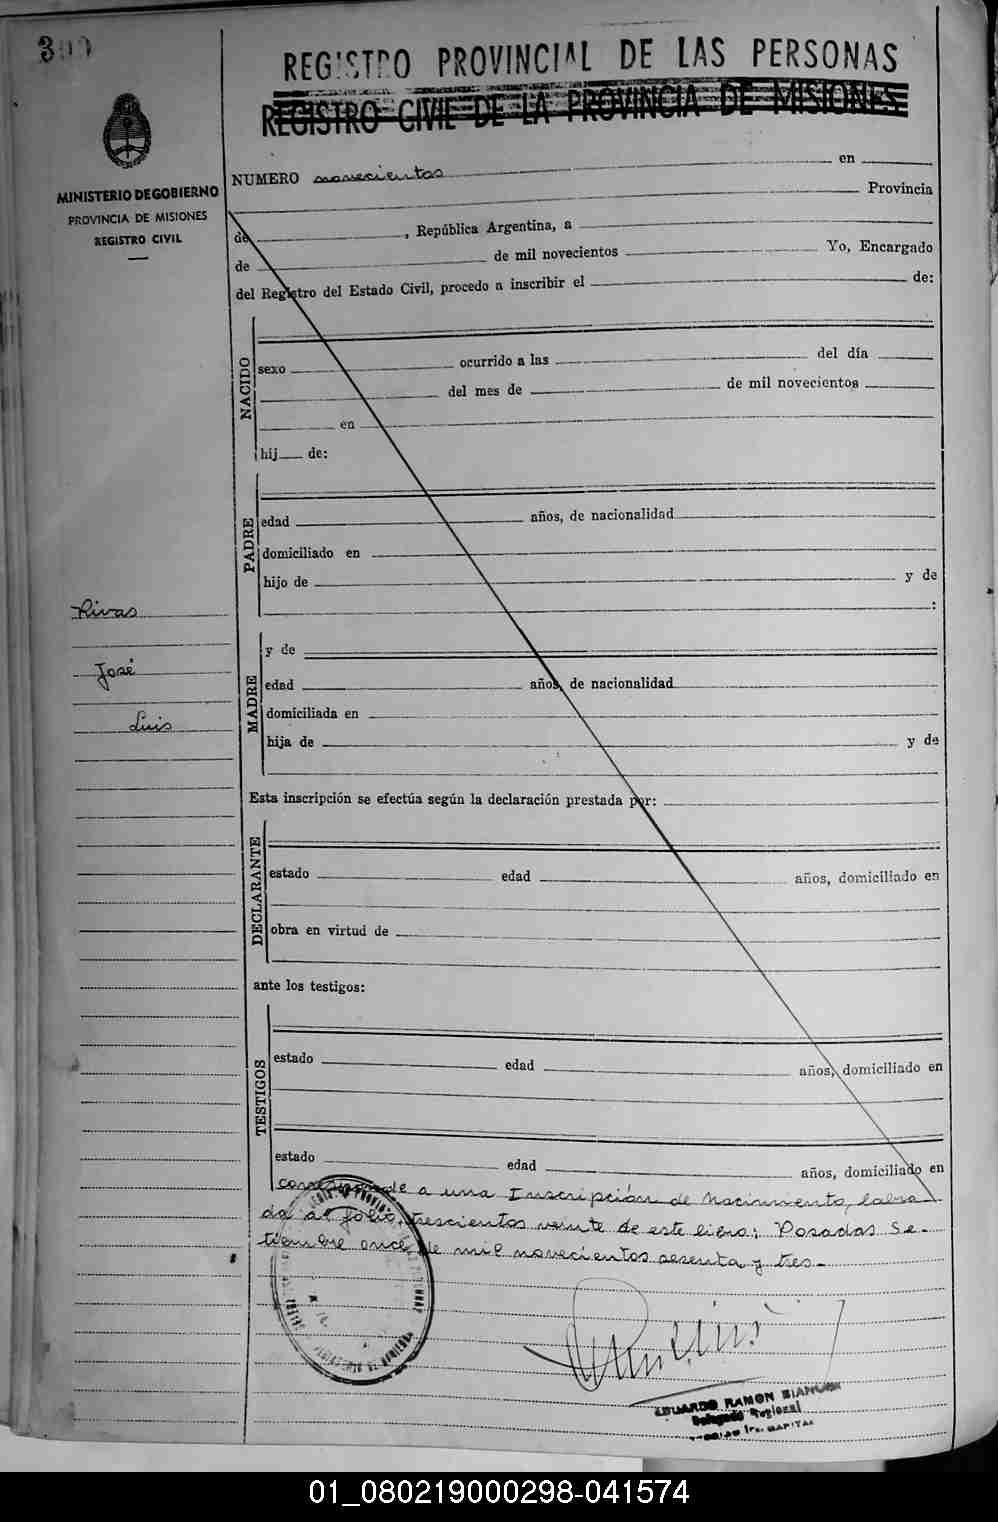 300
REGISTRO PROVINCIAL DE LAS PERSONAS
REGISTRO CIVIL DE LA PROVINCIA DE MISIONES
MINISTERIO DE GOBIERNO
PROVINCIA DE MISIONES
REGISTRO CIVIL
NUMERO novecientos en
Provincia
de , República Argentina, a
de de mil novecientos Yo, Encargado
del Registro del Estado Civil, procedo a inscribir el de:
NACIDO
sexo ocurrido a las del día
del mes de de mil novecientos
en
hij de:
PADRE
edad años, de nacionalidad
domiciliado en
hijo de y de
:
Rivas
José
Luis
MADRE
y de
edad años, de nacionalidad
domiciliada en
hija de y de
Esta inscripción se efectúa según la declaración prestada por:
DECLARANTE
estado edad años, domiciliado en
obra en virtud de
ante los testigos:
TESTIGOS
estado edad años, domiciliado en
estado edad años, domiciliado en
corresponde a una Inscripción de Nacimiento, labra
da al folio, trescientos veinte de este libro; Posadas Se-
tiembre once de mil novecientos sesenta y tres-
EDUARDO RAMON
Delegado Regional
01_080219000298-041574